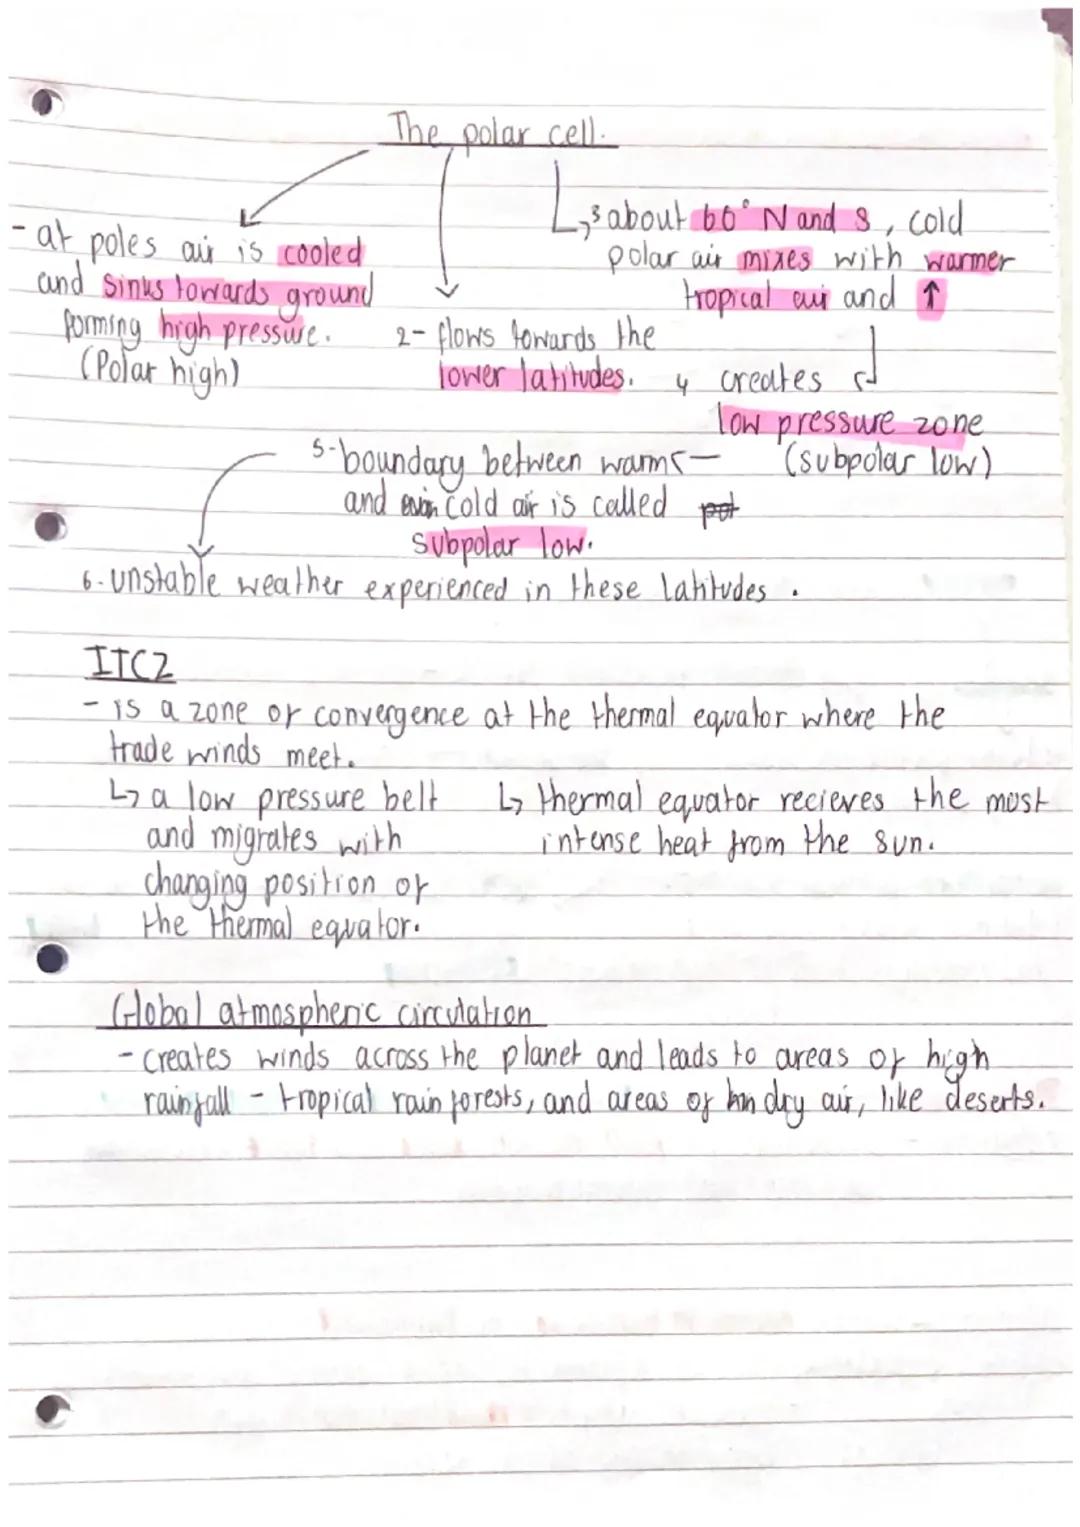 The polar cell.
- at poles air is cooled
and sinks towards ground
forming high pressure.
(Polar high)
2- flows towards the
lower latitudes.
3 about 60° N and S, cold
polar air mixes with warmer
tropical air and ↑
4 creates
low pressure zone
(subpolar low)
5- boundary between warm
and cold air is called
subpolar low.
6. unstable weather experienced in these latitudes.
ITCZ
- is a zone of convergence at the thermal equator where the
trade winds meet.
↳ a low pressure belt
and migrates with
changing position of
the thermal equator.
↳ thermal equator recieves the most
intense heat from the sun.
Global atmospheric circulation
- creates winds across the planet and leads to areas of high
rainfall - tropical rain forests, and areas of dry air, like deserts.